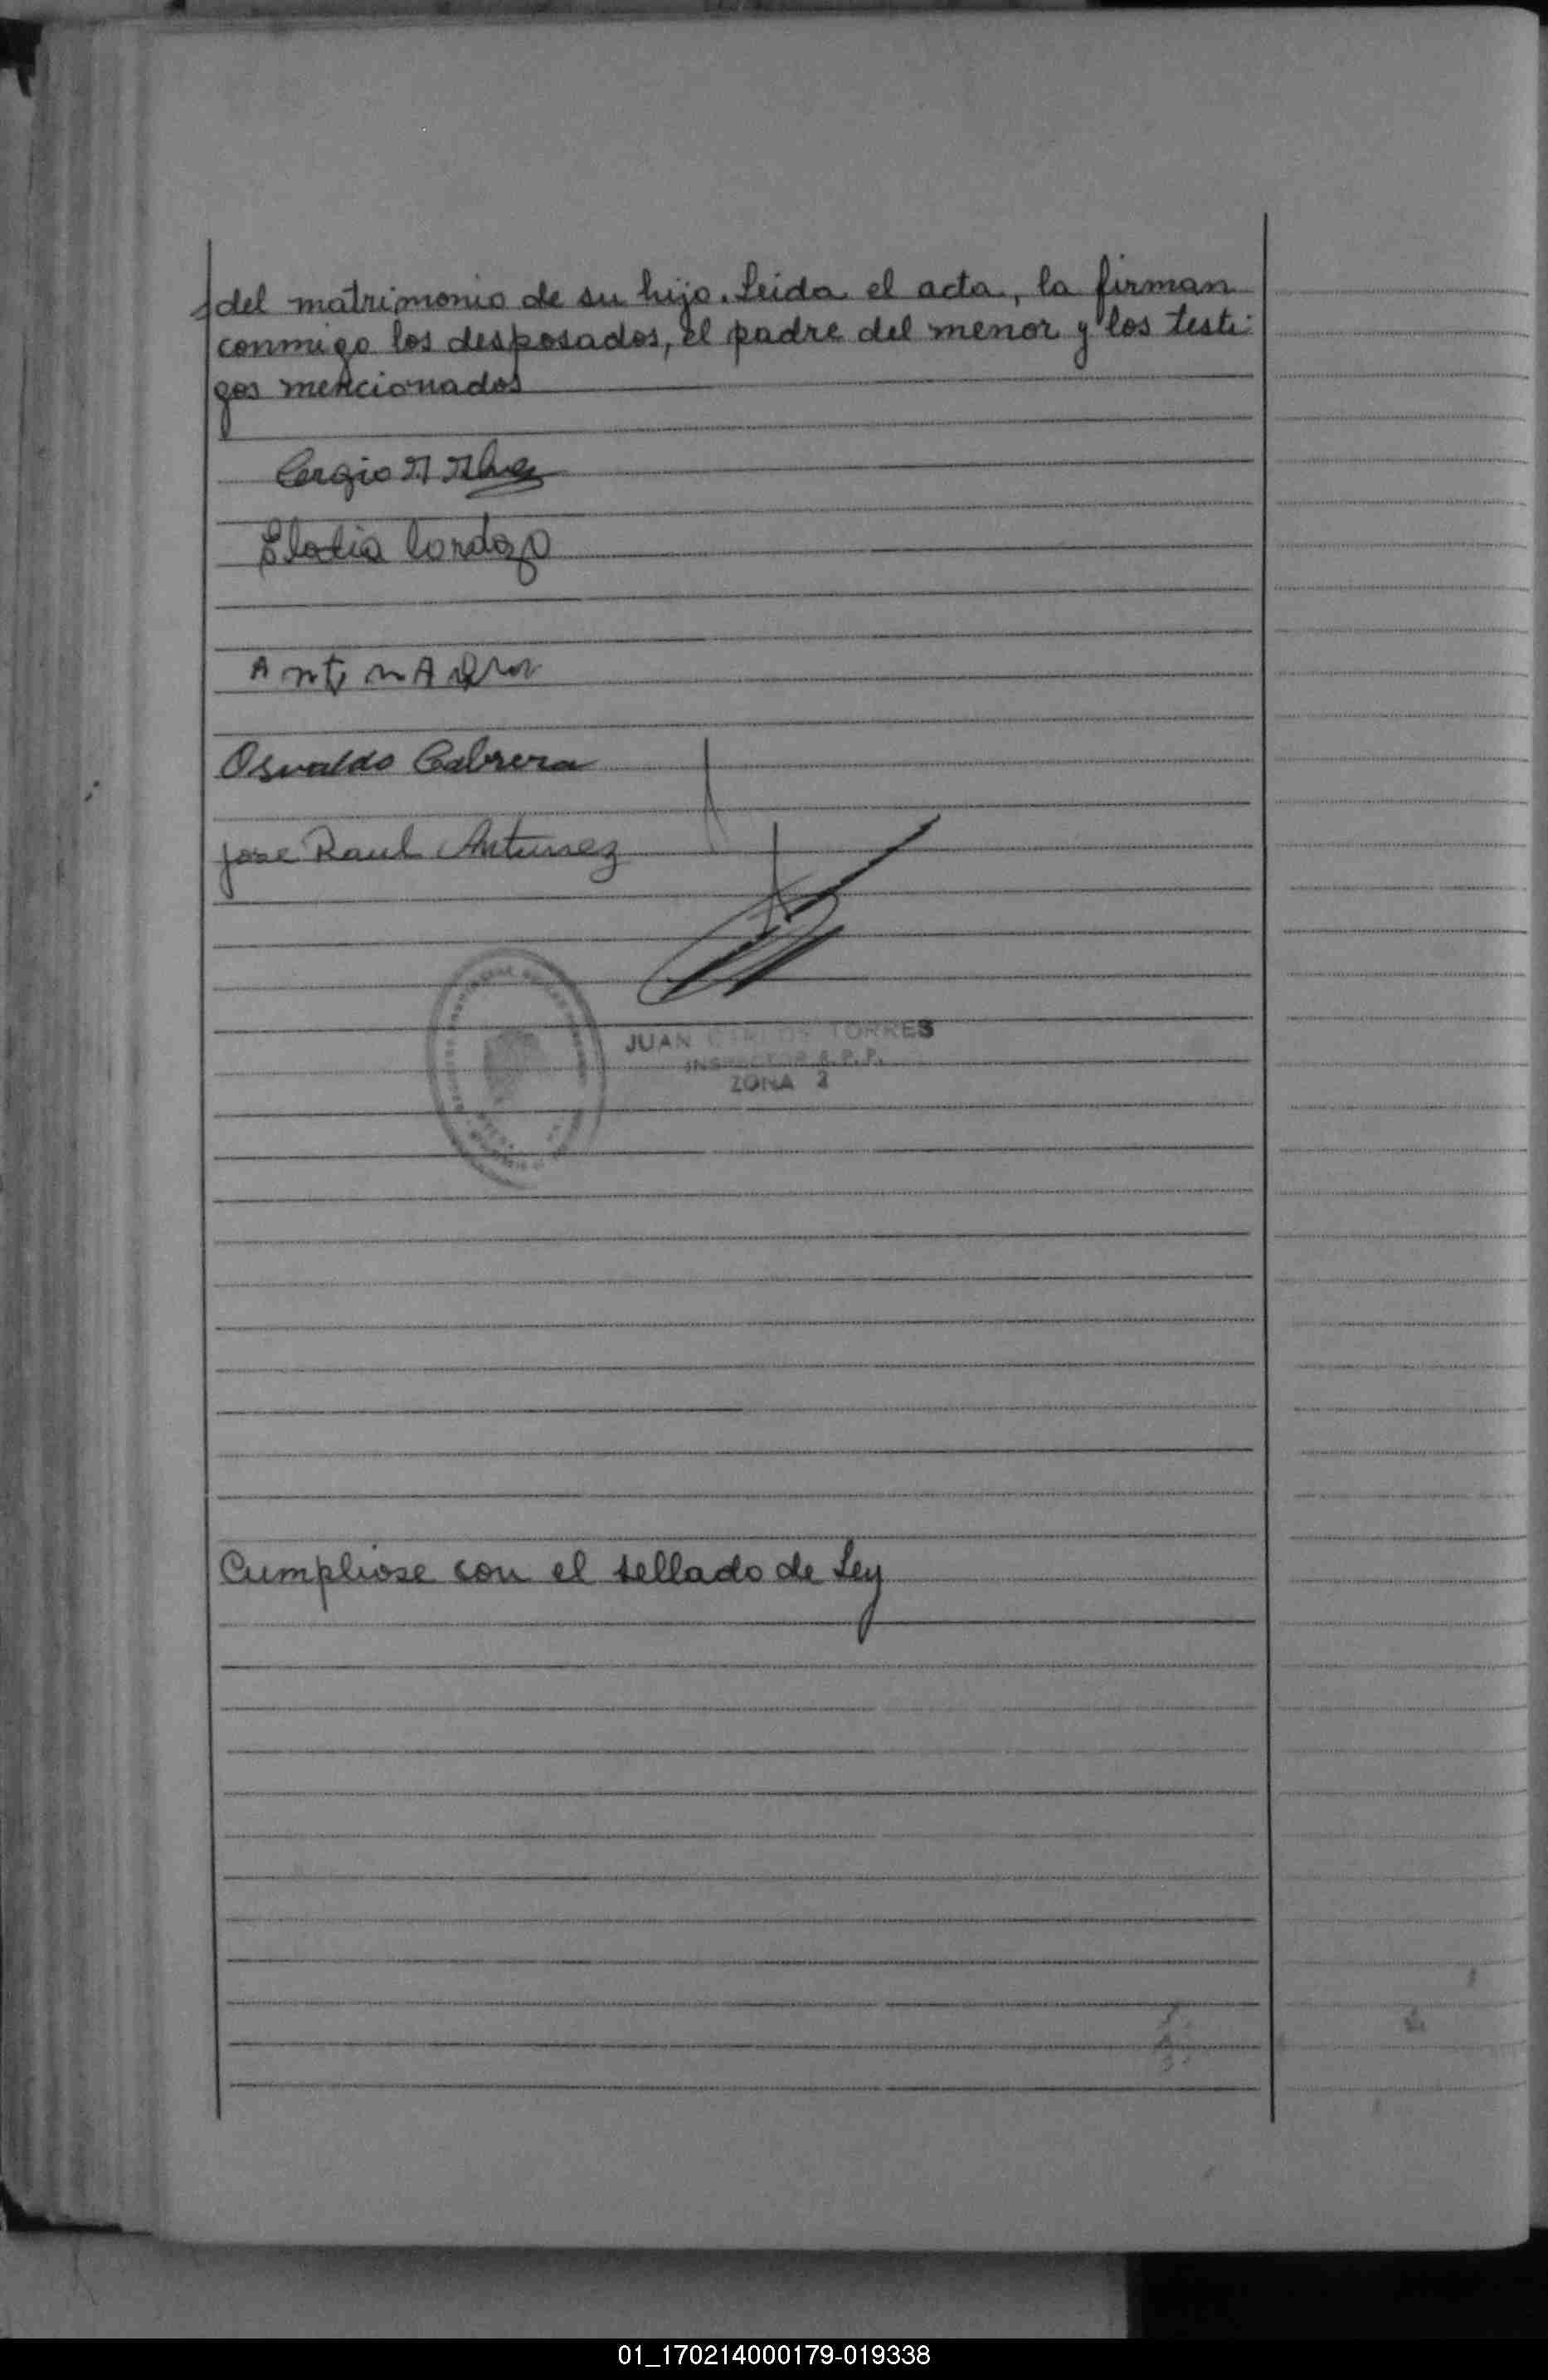 del matrimonio de su hijo. Leida el acta, la firman
conmigo los desposados, el padre del menor y los testi-
gos mencionados
Sergio
Cardozo
Osvaldo Cabrera
Jose Raul Antunez
JUAN CARLOS TORRES
INSPECTOR R.P.P.
ZONA 2
Cumpliose con el sellado de Ley
01_170214000179-019338